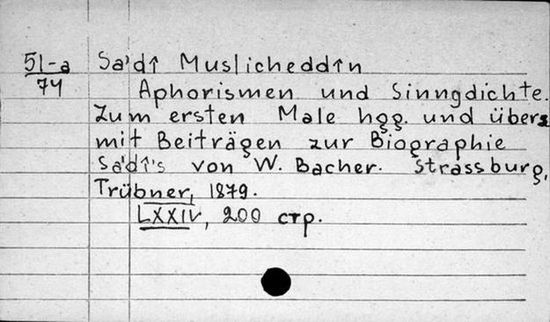 51-a Sa'dî Muslicheddîn
74 Aphorismen und Sinngdichte.
Zum ersten Male hgg. und übers
mit Beiträgen zur Biographie
Sa'dî's von W. Bacher. Strassburg,
Trübner, 1879.
LXXIV, 200 стр.